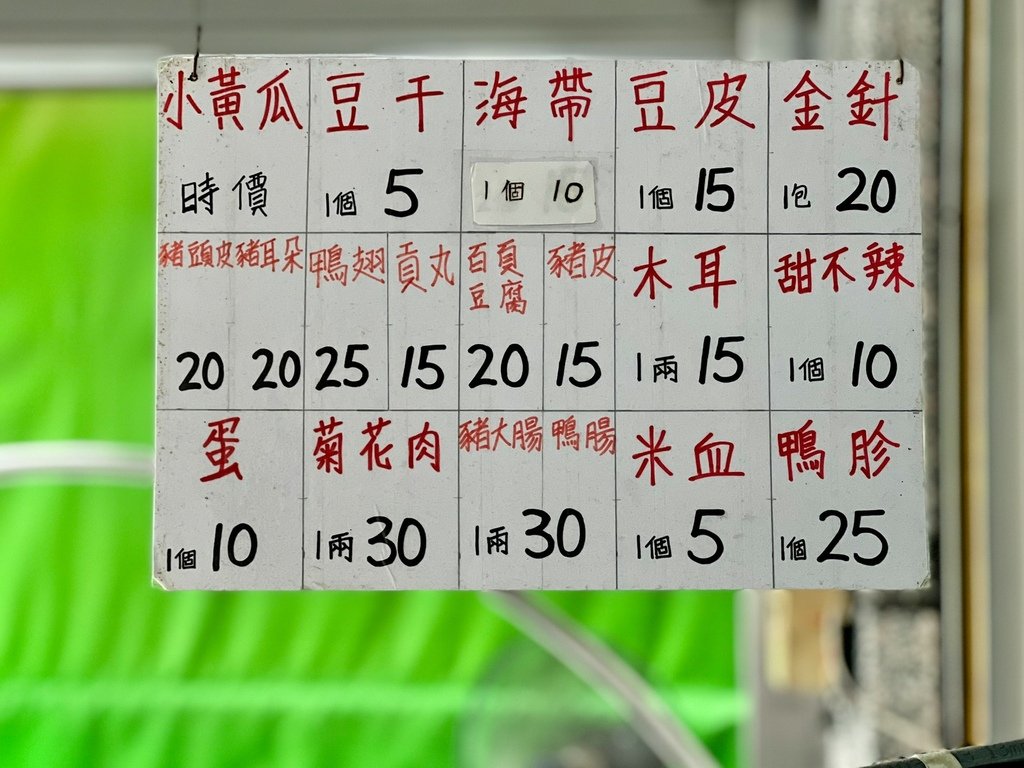 小黃瓜 豆干 海帶 豆皮 金針
時價 1個 5 1個 10 1個 15 1包 20
豬頭皮 豬耳朵 鴨翅 貢丸 百頁豆腐 豬皮 木耳 甜不辣
20 20 25 15 20 15 1兩 15 1個 10
蛋 菊花肉 豬大腸 鴨腸 米血 鴨胗
1個 10 1兩 30 1兩 30 1個 5 1個 25